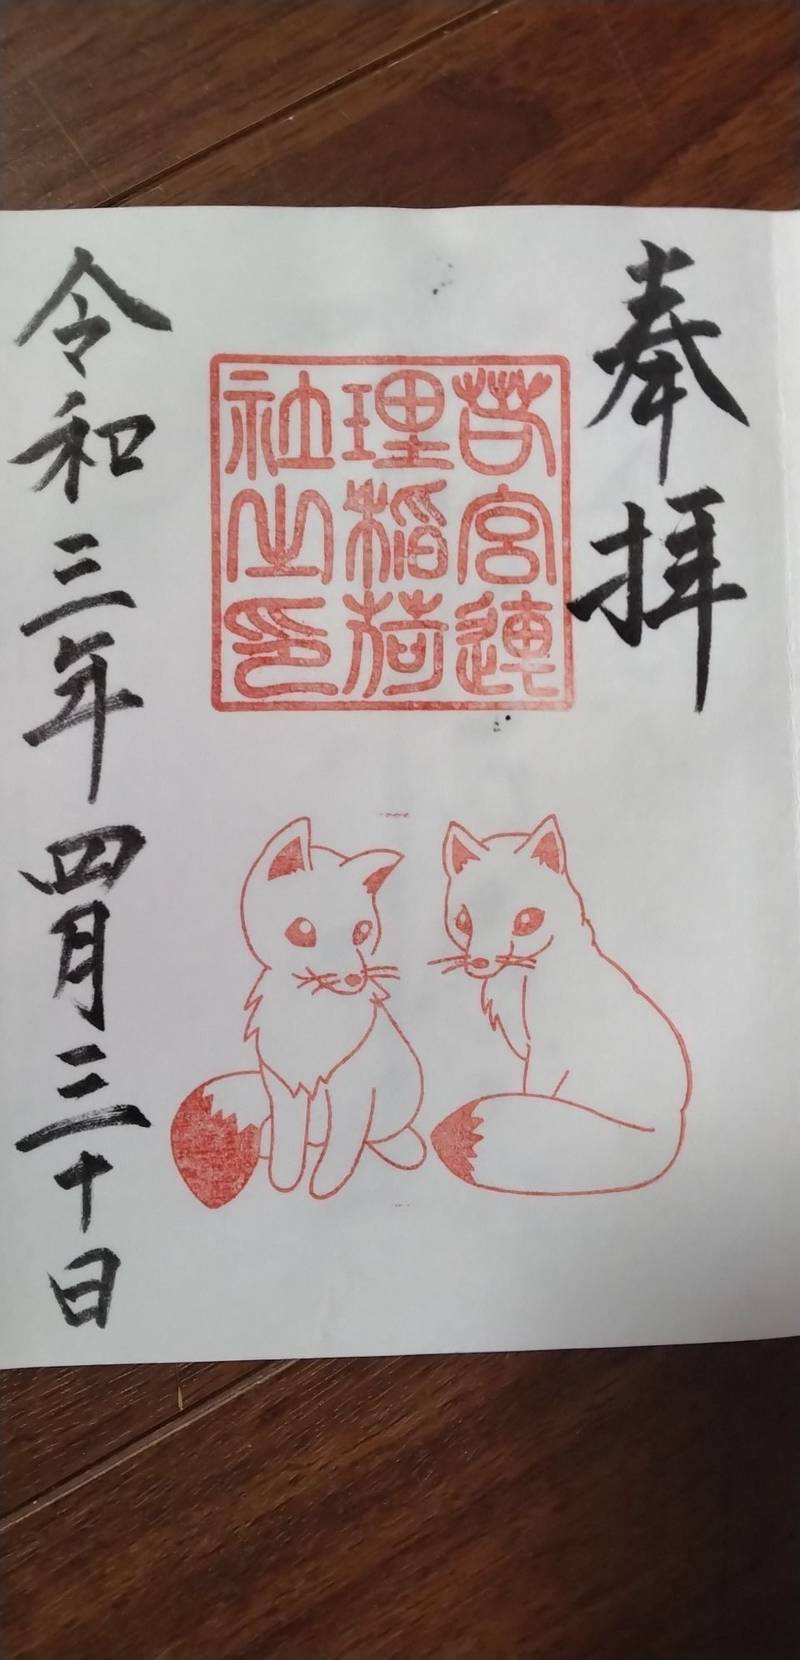 奉拝
若宮連
理稲荷
社之印
令和三年四月三十日